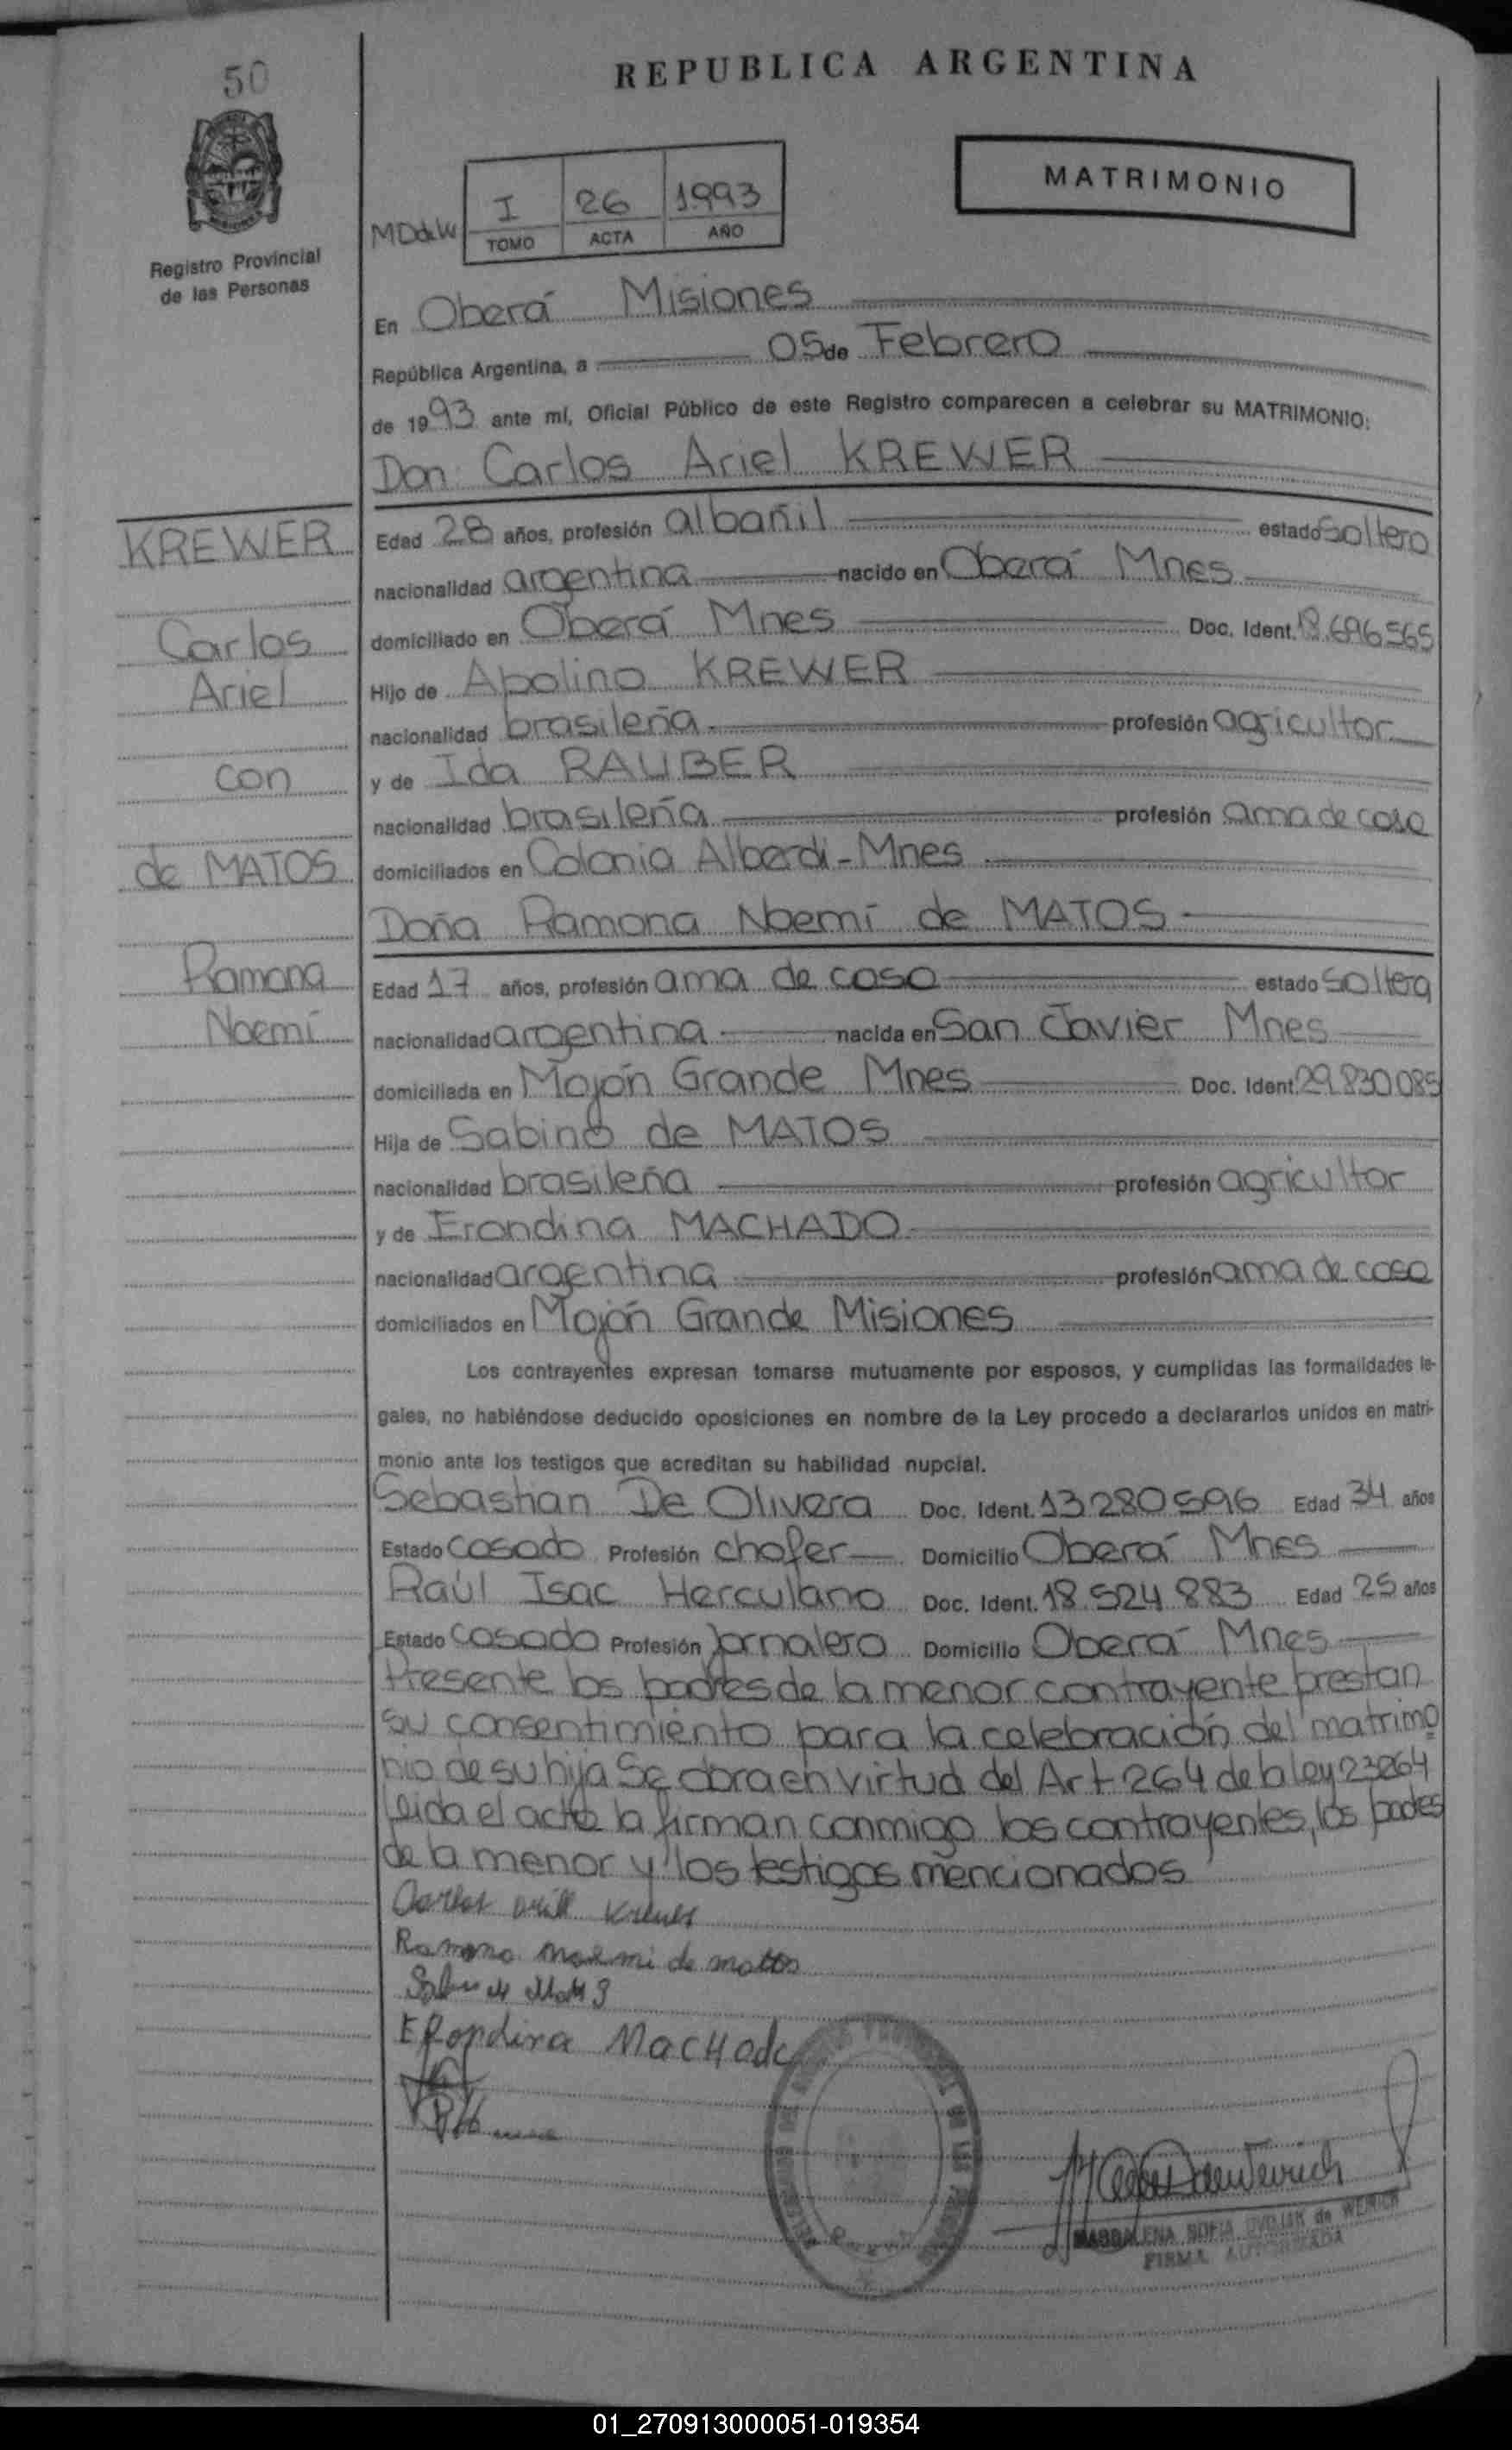 50
REPUBLICA ARGENTINA
Registro Provincial
de las Personas
MATRIMONIO
MDdeW
I 26 1993
TOMO ACTA AÑO
En Oberá Misiones
República Argentina, a 05 de Febrero
de 1993 ante mí, Oficial Público de este Registro comparecen a celebrar su MATRIMONIO:
Don Carlos Ariel KREWER
KREWER
Carlos
Ariel
con
de MATOS
Ramona
Noemí
Edad 28 años, profesión albañil estado soltero
nacionalidad argentina nacido en Oberá Mnes
domiciliado en Oberá Mnes Doc. Ident. 18.696565
Hijo de Apolino KREWER
nacionalidad brasileña profesión agricultor
y de Ida RAUBER
nacionalidad brasileña profesión ama de casa
domiciliados en Colonia Alberdi-Mnes
Doña Ramona Noemí de MATOS
Edad 17 años, profesión ama de casa estado soltera
nacionalidad argentina nacida en San Javier Mnes
domiciliada en Mojón Grande Mnes Doc. Ident. 29.830085
Hija de Sabino de MATOS
nacionalidad brasileña profesión agricultor
y de Erondina MACHADO
nacionalidad argentina profesión ama de casa
domiciliados en Mojón Grande Misiones
Los contrayentes expresan tomarse mutuamente por esposos, y cumplidas las formalidades le-
gales, no habiéndose deducido oposiciones en nombre de la Ley procedo a declararlos unidos en matri-
monio ante los testigos que acreditan su habilidad nupcial.
Sebastian De Olivera Doc. Ident. 13280596 Edad 34 años
Estado casado Profesión chofer Domicilio Oberá Mnes
Raúl Isac Herculano Doc. Ident. 18.524.883 Edad 25 años
Estado casado Profesión jornalero Domicilio Oberá Mnes
Presente los padres de la menor contrayente prestan
su consentimiento para la celebración del matrimo
nio de su hija Se obra en virtud del Art 264 de la ley 23264
Leida el acta la firman conmigo los contrayentes, los padres
de la menor y los testigos mencionados
Ramona Noemi de mattos
Efondina MacHado
MAGDALENA SOFIA DVOJAK de WERICH
FIRMA AUTORIZADA
01_270913000051-019354